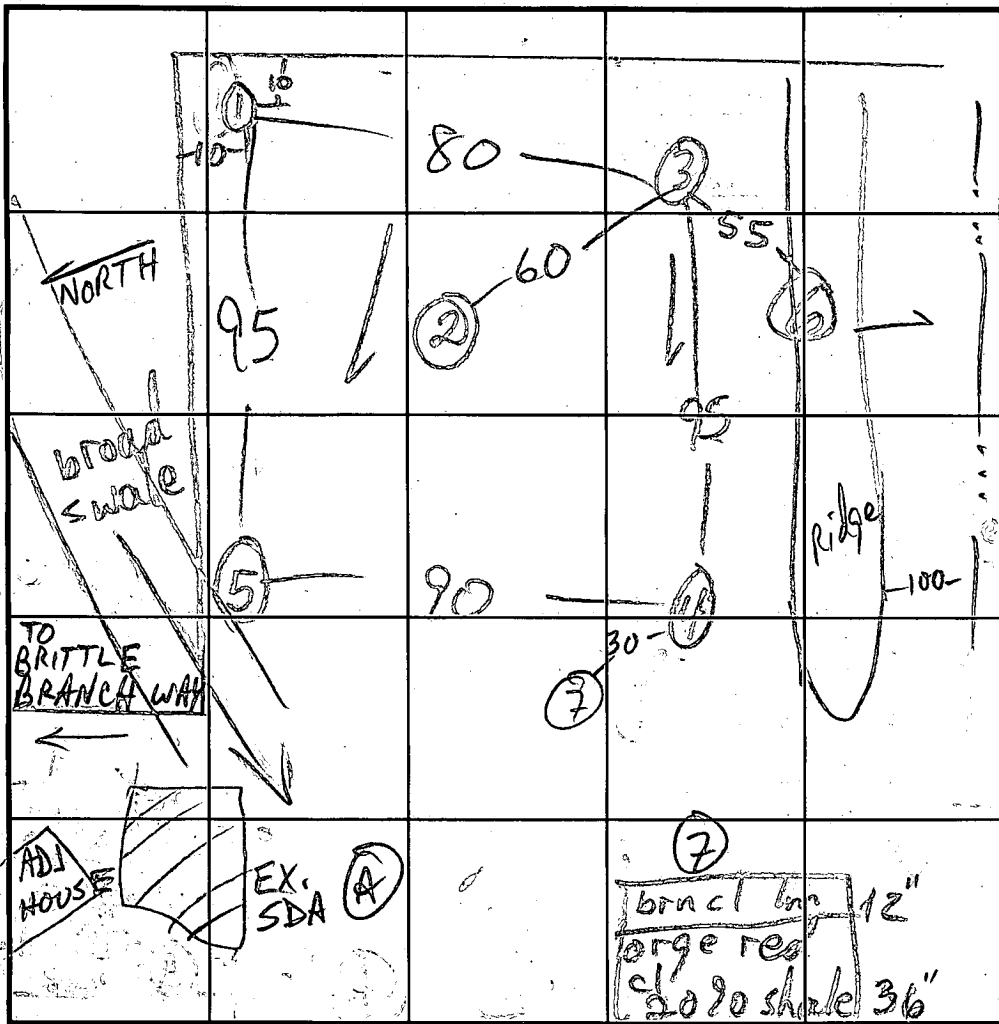 10
1
10
80
3
55
NORTH
60
2
95
6
95
broad
swale
Ridge
5
90
100
TO
BRITTLE
BRANCH WAY
30
7
ADJ
HOUSE
EX.
SDA
A
7
brn cl lm 12"
orge red
cl
20% shale 36"